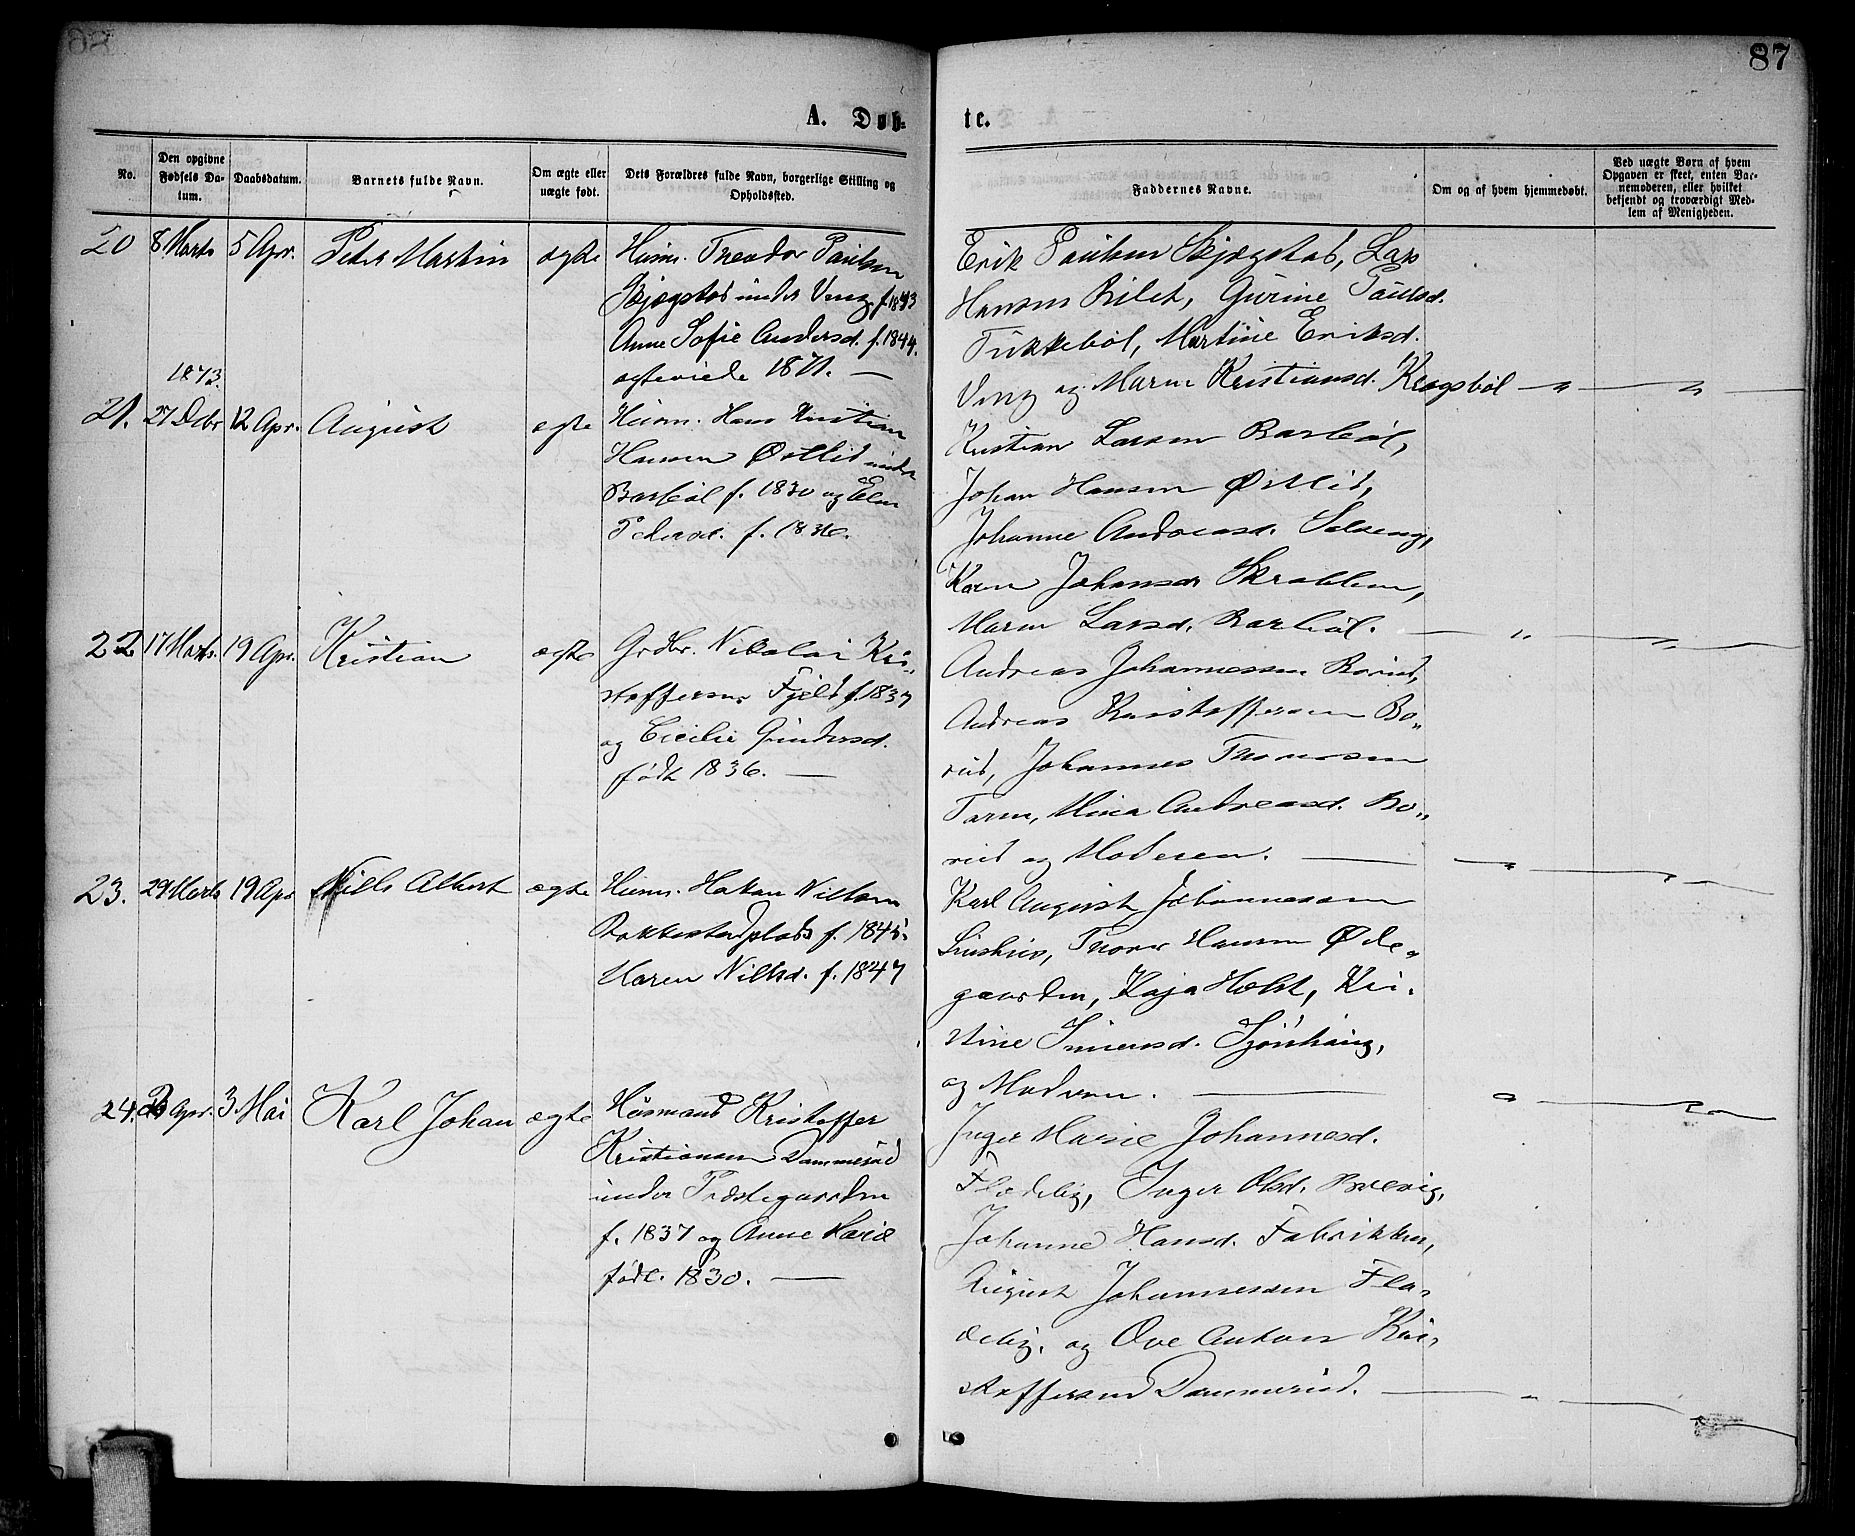 87
A. Døb-
te.
No.
Den opgivne Fødsels Da-tum.
Daabsdatum.
Barnets fulde Navn.
Om ægte eller uægte født.
Dets Forældres fulde Navn, borgerlige Stilling og Opholdssted.
Faddernes Navne.
Om og af hvem hjemmedøbt.
Ved uægte Børn af hvem Opgaven er skeet, enten Bar-nemoderen, eller hvilket bekjendt og troværdigt Med-lem af Menigheden.
20 8 Marts 5 Apr. Peter Martin ægte Husm. Theodor Paulsen
Skjægstad under Veng f. 1843
Anne Sofie Andersd. f. 1844.
ægteviede 1871. —
Erik Paulsen Skjægstad, Lars
Hansen Bilet, Gurine Paulsd.
Tukkebøl, Martine Eriksd.
Veng og Maren Kristiansd. Krogsbøl — " — " —
1873.
21. 27 Dcbr 12 Apr. August ægte Husm. Hans Kristian
Hansen Østlid under
Barbøl f. 1830 og Elen
Pedersd. f. 1836.
Kristian Larsen Barbøl,
Johan Hansen Østlid,
Johanne Andreasd. Solveng,
Karen Johansd.
Maren Larsd. Barbøl. — " — " —
22. 17 Marts 19 Apr. Kristian ægte Grdbr. Nikolai Kri-
stoffersen Fjeld f. 1837
og Cicilie Gundersd.
født 1836. —
Andreas Johannessen Borud,
Andreas Kristoffersen Bo-
rud, Johannes Thomesen
Mina Andreasd. Bo-
rud og Moderen. — " — " —
23. 29 Marts 19 Apr Nills Albert ægte Husm. Hakan Nilsen
f. 1845.
Maren Nilsd. f. 1847
Karl August Johannessen
Thore Hansen Øde-
gaarden, Kaja Holst, Kri-
stine Simensd. Sjønhaug,
og Moderen. — " — " —
24. Apr. 3 Mai Karl Johan ægte Husmand Kristoffer
Kristiansen Dammerud
under Præstegaarden
f. 1837 og Anne Marie
født. 1830. —
Inger Marie Johannesd.
Fladeby, Inger Olsd. Brevig,
Johanne Hansd. Fabrikken,
August Johannessen Fla-
deby, og Ove Anton Kri-
stoffersen Dammerud. — " —